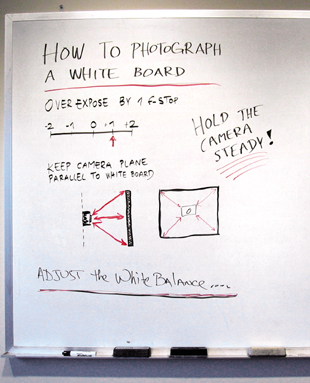 HOW TO PHOTOGRAPH
A WHITE BOARD
OVER EXPOSE BY 1 F-STOP
-2 -1 0 +1 +2
HOLD THE
CAMERA
STEADY!
KEEP CAMERA PLANE
PARALLEL TO WHITE BOARD
ADJUST the White Balance....